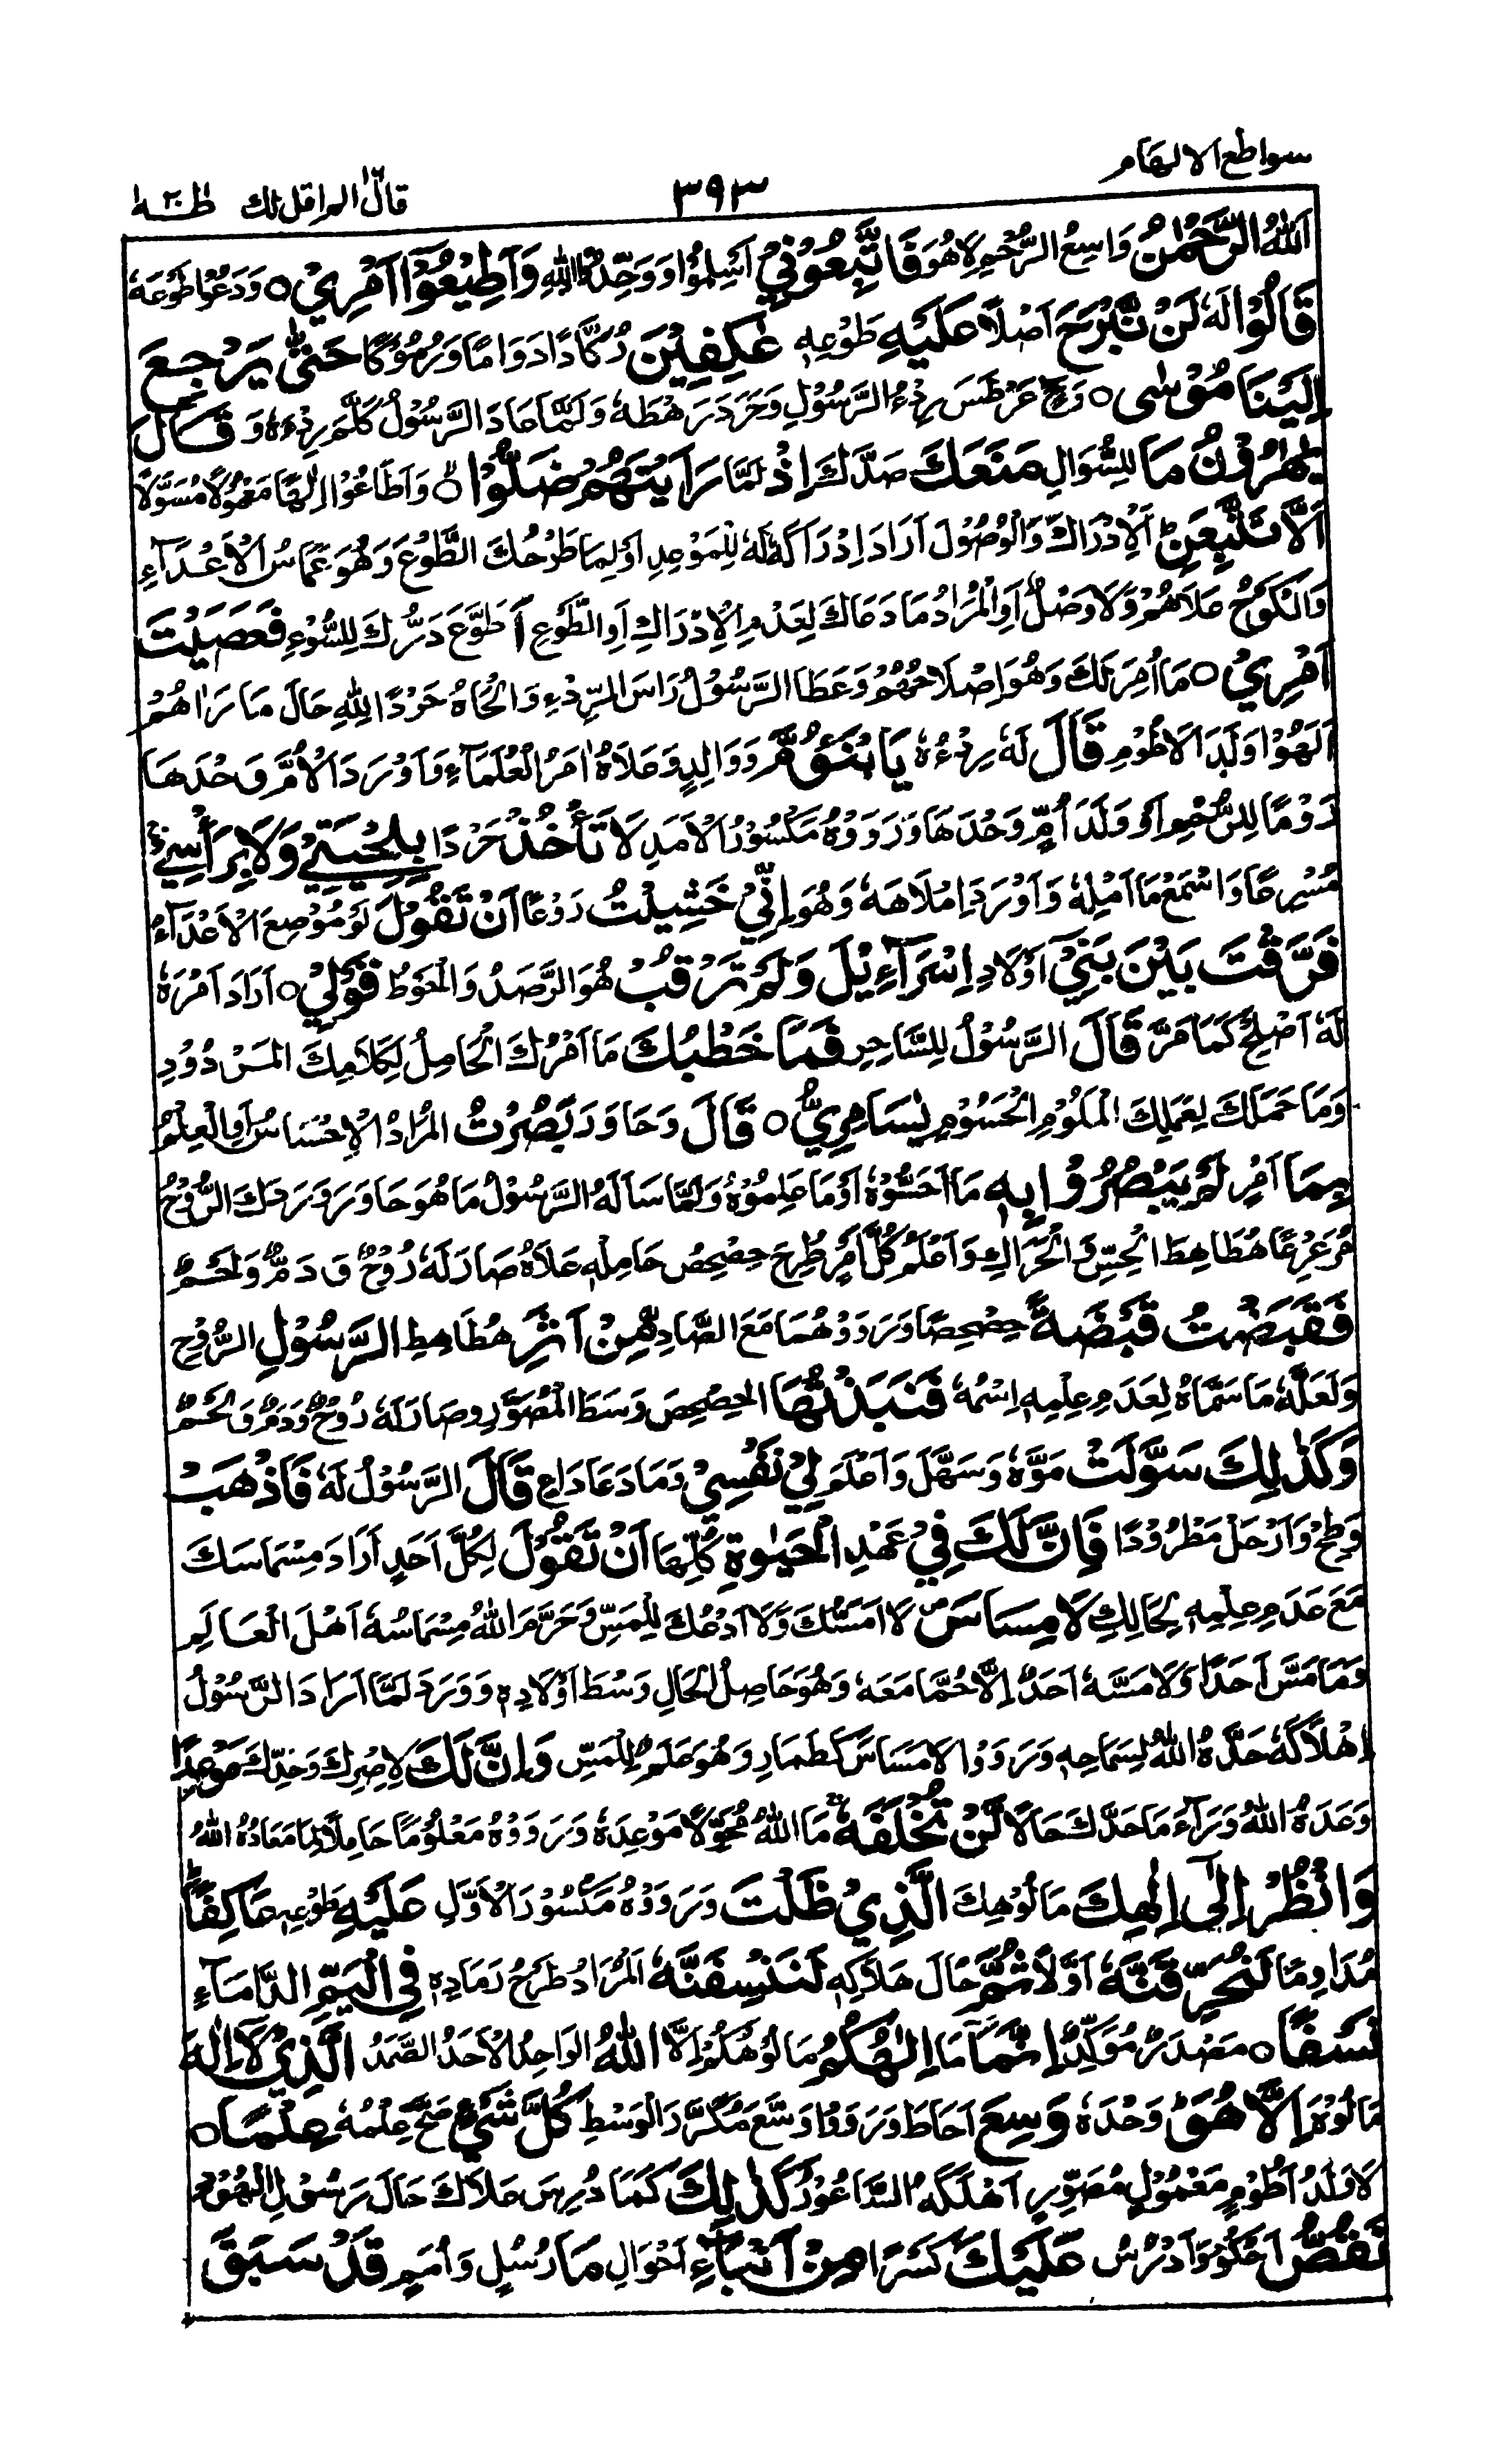 سواطع الالهام
٣٩٣
قال الم اقل لك طه ٢٠
اللهُ الرَّحْمٰنُ وَاسِعُ الرُّحْمِ لَاهُوَ فَاتَّبِعُوْنِيْ اَسْلِمُوْا وَوَحِّدُوا اللهِ وَاَطِيْعُوْٓا اَمْرِيْ ○ وَدَعُوْا طَوْعَهٗ
قَالُوْا لَهٗ لَنْ نَّبْرَحَ اَصْلًا عَلَيْهِ طَوْعِهٖ عٰكِفِيْنَ رُكَّادًا دَوَامًا وَرُمُوْكًا حَتّٰى يَرْجِعَ
اِلَيْنَا مُوْسٰى ○ وَح عَرْطَسَ رِدْءُ الرَّسُوْلِ وَحَرَدَ رَهْطَهٗ وَلَمَّا عَادَ الرَّسُوْلُ كَلَّمَ رِدْءَهٗ وَ قَالَ
يٰهٰرُوْنُ مَا لِلسُّوَالِ مَنَعَكَ صَدَّكَ اِذْ لَمَّا رَاَيْتَهُمْ ضَلُّوْٓا ○ وَاَطَاعُوْا اِلٰهًا مَعْمُوْلًا مُسَوَّلًا
اَلَّا تَتَّبِعَنِ اَلْاِدْرَاكُ وَالْوُصُوْلُ اَرَادَ اِدْرَاكَهٗ لَهٗ لِلْمَوْعِدِ اَوْ لِمَا طَرْحُكَ الطَّوْعَ وَهُوَ عَمَاسُ الْاَعْدَآءِ
وَالْكُوْحُ مَلَاهُمْ وَلَا وَصْلُ اَوِ الْمُرَادُ مَا دَعَاكَ لِعَدْمِ الْاِدْرَاكِ اَوِ الطَّوْعِ اَ طَوَّعَ دَسُّكَ لِلسُّوْءِ فَعَصَيْتَ
اَمْرِيْ ○ مَا اُمِرَ لَكَ وَهُوَ اِصْلَاحُهُمْ وَعَطَا الرَّسُوْلُ رَاسَ الرِّدْءِ وَالْحَاهُ حَرْدًا لِلّٰهِ حَالَ مَا رَاٰهُمْ
اَلَّهُوْا وَلَدَ الْاَطُوْمِ قَالَ لَهٗ رِدْءُهٗ يَا ابْنَؤُمَّ وَوَالِدٍ وَمَلَاهُ اَمَرُ الْعُلَمَآءِ وَاَوْرَدَ الْاُمَّ وَحْدَهَا
رَوْمًا لِلرُّحْمِ اَوْ وَلَدَ اُمٍّ وَحْدَهَا وَرَوَوْهُ مَكْسُوْرَ الْاَمَدِ لَا تَأْخُذْ حَرْدًا بِلِحْيَتِيْ وَلَا بِرَأْسِيْ
مُسْرِعًا وَاسْمَعْ مَا اُمْلِهٗ وَاَوْرَدَ اِمْلَاهَهٗ وَهُوَ اِنِّيْ خَشِيْتُ رَوْعًا اَنْ تَقُوْلَ لَوْ مُوْصِعَ الْاَعْدَآءِ
فَرَّقْتَ بَيْنَ بَنِيْٓ اَوْلَادِ اِسْرَآءِيْلَ وَلَمْ تَرْقُبْ هُوَ الرَّصَدُ وَالْحَوْطُ قَوْلِيْ ○ اَرَادَ اَمْرَهٗ
لَهٗ اَصْلِحْ كَمَا مَرَّ قَالَ الرَّسُوْلُ لِلسَّاحِرِ فَمَا خَطْبُكَ مَا اَمْرُكَ الْحَامِلُ لِكَلَامِكَ الْمَرْدُوْدِ
وَمَا حَمَلَكَ لِعَمَلِكَ الْمَلُوْمِ الْحَسُوْمِ يٰسَامِرِيُّ ○ قَالَ وَحَاوَرَ بَصُرْتُ الْمُرَادُ الْاِحْسَاسُ اَوِ الْعِلْمُ
بِمَا اَمْرٍ لَمْ يَبْصُرُوْا بِهٖ مَا اَحَسُّوْهُ اَوْ مَا عَلِمُوْهُ وَلَمَّا سَاَلَهُ الرَّسُوْلُ مَا هُوَ حَاوَرَ وَرَدَكَ الرُّوْحُ
مُرْعِرِعًا هُطَاهِطَ الْحِسِّ وَالْحَرَاكِ وَاَعْلَمُ كُلَّ اَمْرٍ طُرِحَ حِصْحِصُ حَامِلِهٖ عَلَاهُ صَارَ لَهٗ رُوْحٌ وَدَمٌ وَلَحْمٌ
فَقَبَضْتُ قَبْضَةً حِصْحِصًا وَرَوَوْهُمَا مَعَ الصَّادِ مِّنْ اَثَرِ هُطَاهِطِ الرَّسُوْلِ الرُّوْحِ
وَلَعَلَّهٗ مَا سَمَّاهُ لِعَدَمِ عِلْمِهٖ اِسْمَهٗ فَنَبَذْتُهَا الْحِصْحِصَ وَسَطَ الْمُصَوَّرِ وَصَارَ لَهٗ رُوْحٌ وَدَمٌ وَلَحْمٌ
وَكَذٰلِكَ سَوَّلَتْ مَوَّهَ وَسَهَّلَ وَاَعْلَمَ لِيْ نَفْسِيْ وَمَا دَعَا دَاعٍ قَالَ الرَّسُوْلُ لَهٗ فَاذْهَبْ
وَطِحْ وَارْحَلْ مَطْرُوْدًا فَاِنَّ لَكَ فِيْ عَهْدِ الْحَيٰوةِ كُلِّهَا اَنْ تَقُوْلَ لِكُلِّ اَحَدٍ اَرَادَ مِسْمَاسَكَ
مَعَ عَدَمِ عِلْمِهٖ لِحَالِكَ لَا مِسَاسَ لَا اَمَسُّكَ وَلَا اَدْعُكَ لِلْمَسِّ وَحَرَّمَ اللهُ مِسْمَاسُهٗ اَهْلَ الْعَالَمِ
وَمَا مَسَّ اَحَدًا وَلَا مَسَّهٗ اَحَدٌ اِلَّا حُمَّا مَعَهٗ وَهُوَ حَاصِلُ الْحَالِ وَسْطَ اَوْلَادِهٖ وَوَرَدَ لَمَّا اَرَادَ الرَّسُوْلُ
اِهْلَاكَهٗ حَدَّهُ اللهُ لِسَمَاحِهٖ وَرَوَوْا لَامَسَاسِ كَطَمَارِ وَهُوَ عَلَمٌ لِلْمَسِّ وَاِنَّ لَكَ لِاِصْرِكَ وَحَدِّكَ مَوْعِدًا
وَعَدَهُ اللهُ وَرَآءَ مَا حَدَّكَ حَالًا لَّنْ تُخْلَفَهٗ مَا اللهُ مُحَوِّلًا مَوْعِدَهٗ وَرَوَوْهُ مَعْلُوْمًا حَامِلًا لِمَا مَعَادُهُ اللهُ
وَانْظُرْ اِلٰٓى اِلٰهِكَ مَالُوْهِكَ الَّذِيْ ظَلْتَ وَرَوَوْهُ مَكْسُوْرَ الْاَوَّلِ عَلَيْهِ طَوْعِهٖ عَاكِفًا
مُدَاوِمًا لَنُحَرِّقَنَّهٗ اَوَّلًا ثُمَّ حَالَ هَلَاكِهٖ لَنَنْسِفَنَّهٗ اَلْمُرَادُ طَرْحُ رَمَادِهٖ فِي الْيَمِّ الدَّامَآءِ
نَسْفًا ○ مَصْدَرٌ مُوَكِّدٌ اِنَّمَآ مَا اِلٰهُكُمُ مَالُوْهُكُمْ اِلَّا اللهُ الْوَاحِدُ الْاَحَدُ الصَّمَدُ الَّذِيْ لَآ اِلٰهَ
مَالُوْهَ اِلَّا هُوَ وَحْدَهٗ وَسِعَ اَحَاطَ وَرَوَوْا وَسَّعَ مُكَرَّرَ الْوَسْطِ كُلَّ شَيْءٍ صَحَّ عِلْمُهٗ عِلْمًا ○
لَا وَلَدُ اَطُوْمٍ مَعْمُوْلٍ مُصَوِّرٍ اَهْلَكَهُ السَّاعُوْرُ كَذٰلِكَ كَمَا دُرِسَ عَلَاكَ حَالَ رَسُوْلِ الْهُوْدِ
نَقُصُّ اَحْكُوْ وَاَدْرُسُ عَلَيْكَ كَسْرًا مِنْ اَنْبَآءِ اَحْوَالِ مَا رُسُلٍ وَاُمَمٍ قَدْ سَبَقَ